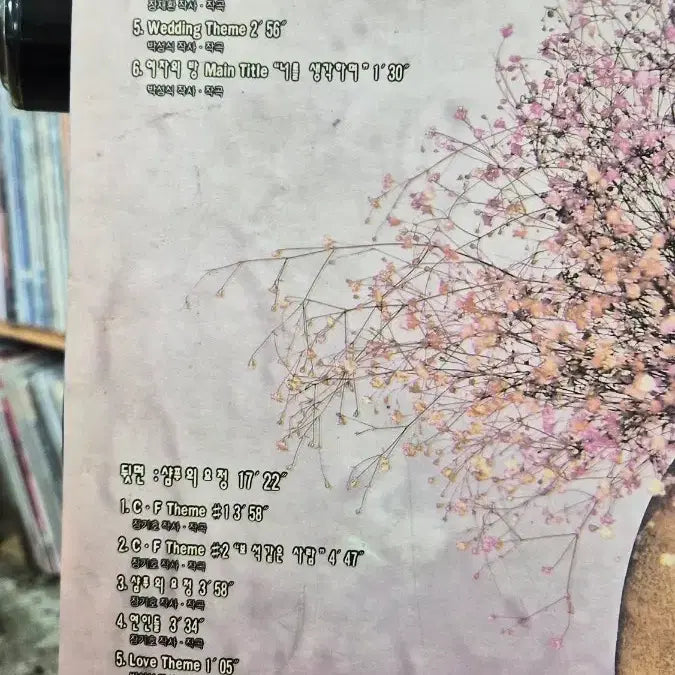 작사·작곡
5. Wedding Theme 2´56˝
박성식 작사·작곡
6. 여자의 방 Main Title "너를 생각하며" 1´30˝
박성식 작사·작곡
뒷면 : 샴푸의 요정 17´22˝
1. C·F Theme #1 3´58˝
장기호 작사·작곡
2. C·F Theme #2 "보석같은 사람" 4´47˝
장기호 작사·작곡
3. 샴푸의 요정 3´58˝
장기호 작사·작곡
4. 연인들 3´34˝
장기호 작사·작곡
5. Love Theme 1´05˝